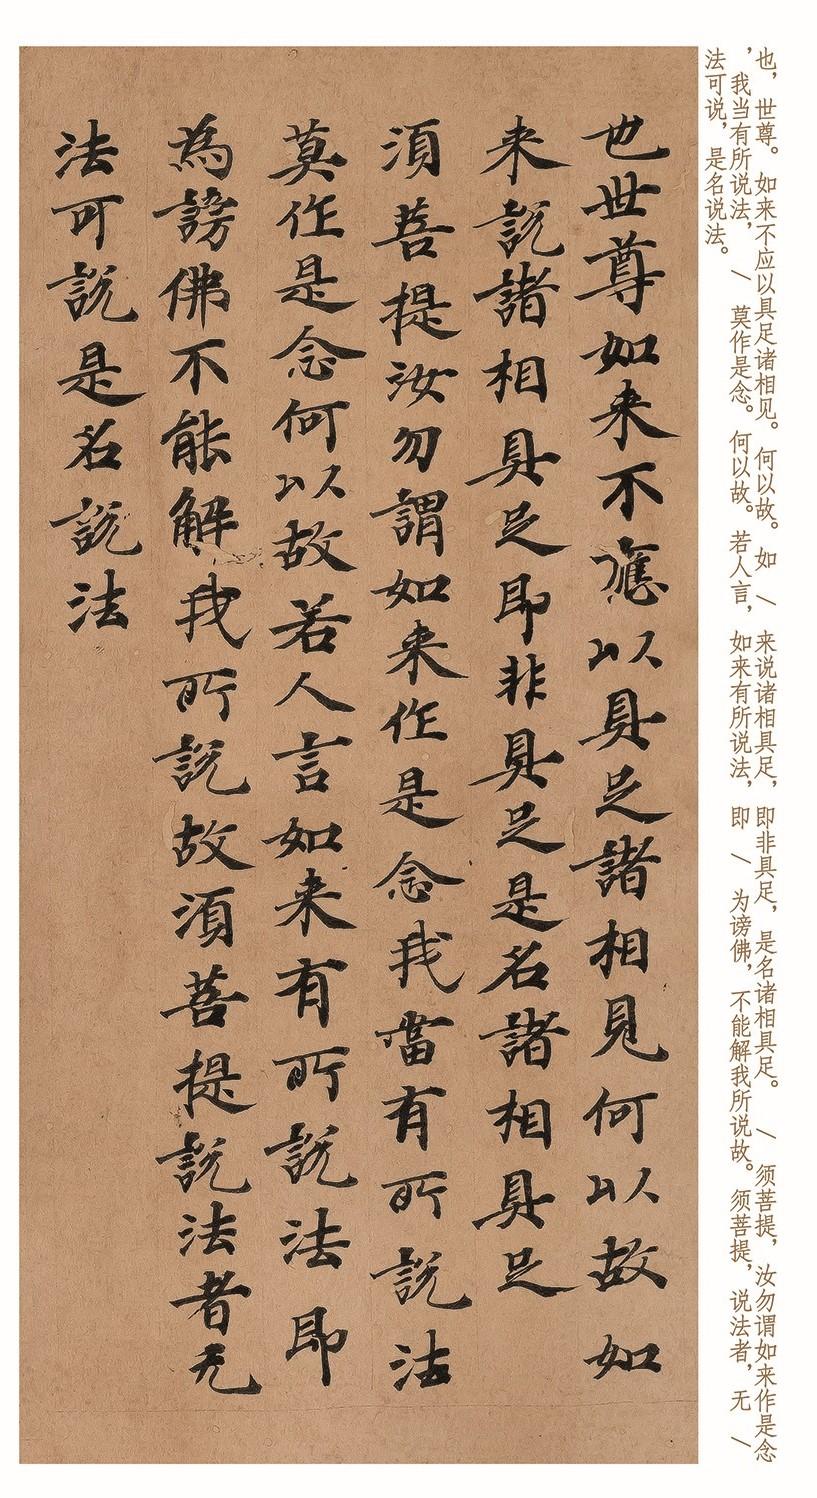 也世尊如来不應以具足諸相見何以故如
来説諸相具足即非具足是名諸相具足
須菩提汝勿謂如来作是念我當有所説法
莫作是念何以故若人言如来有所説法即
為謗佛不能解我所説故須菩提説法者无
法可説是名説法
也，世尊。如来不应以具足诸相见。何以故。如 / 来说诸相具足，即非具足，是名诸相具足。 / 须菩提，汝勿谓如来作是念
，我当有所说法， / 莫作是念。何以故。若人言，如来有所说法，即 / 为谤佛，不能解我所说故。须菩提，说法者，无 /
法可说，是名说法。